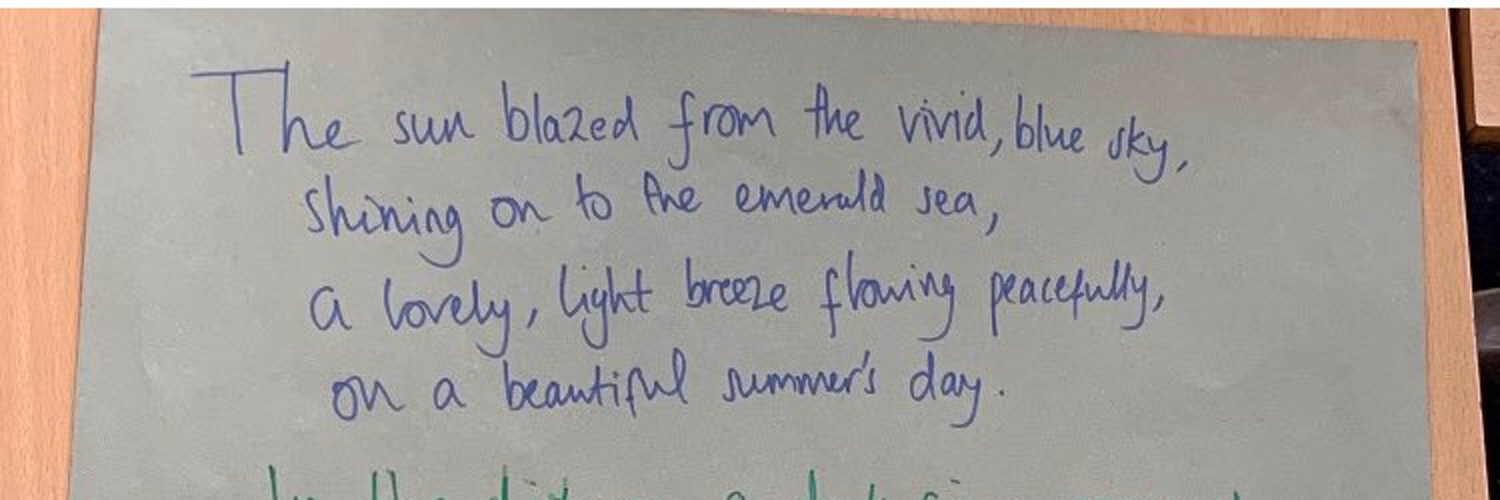 The sun blazed from the vivid, blue sky,
shining on to the emerald sea,
a lovely, light breeze flowing peacefully,
on a beautiful summer's day.